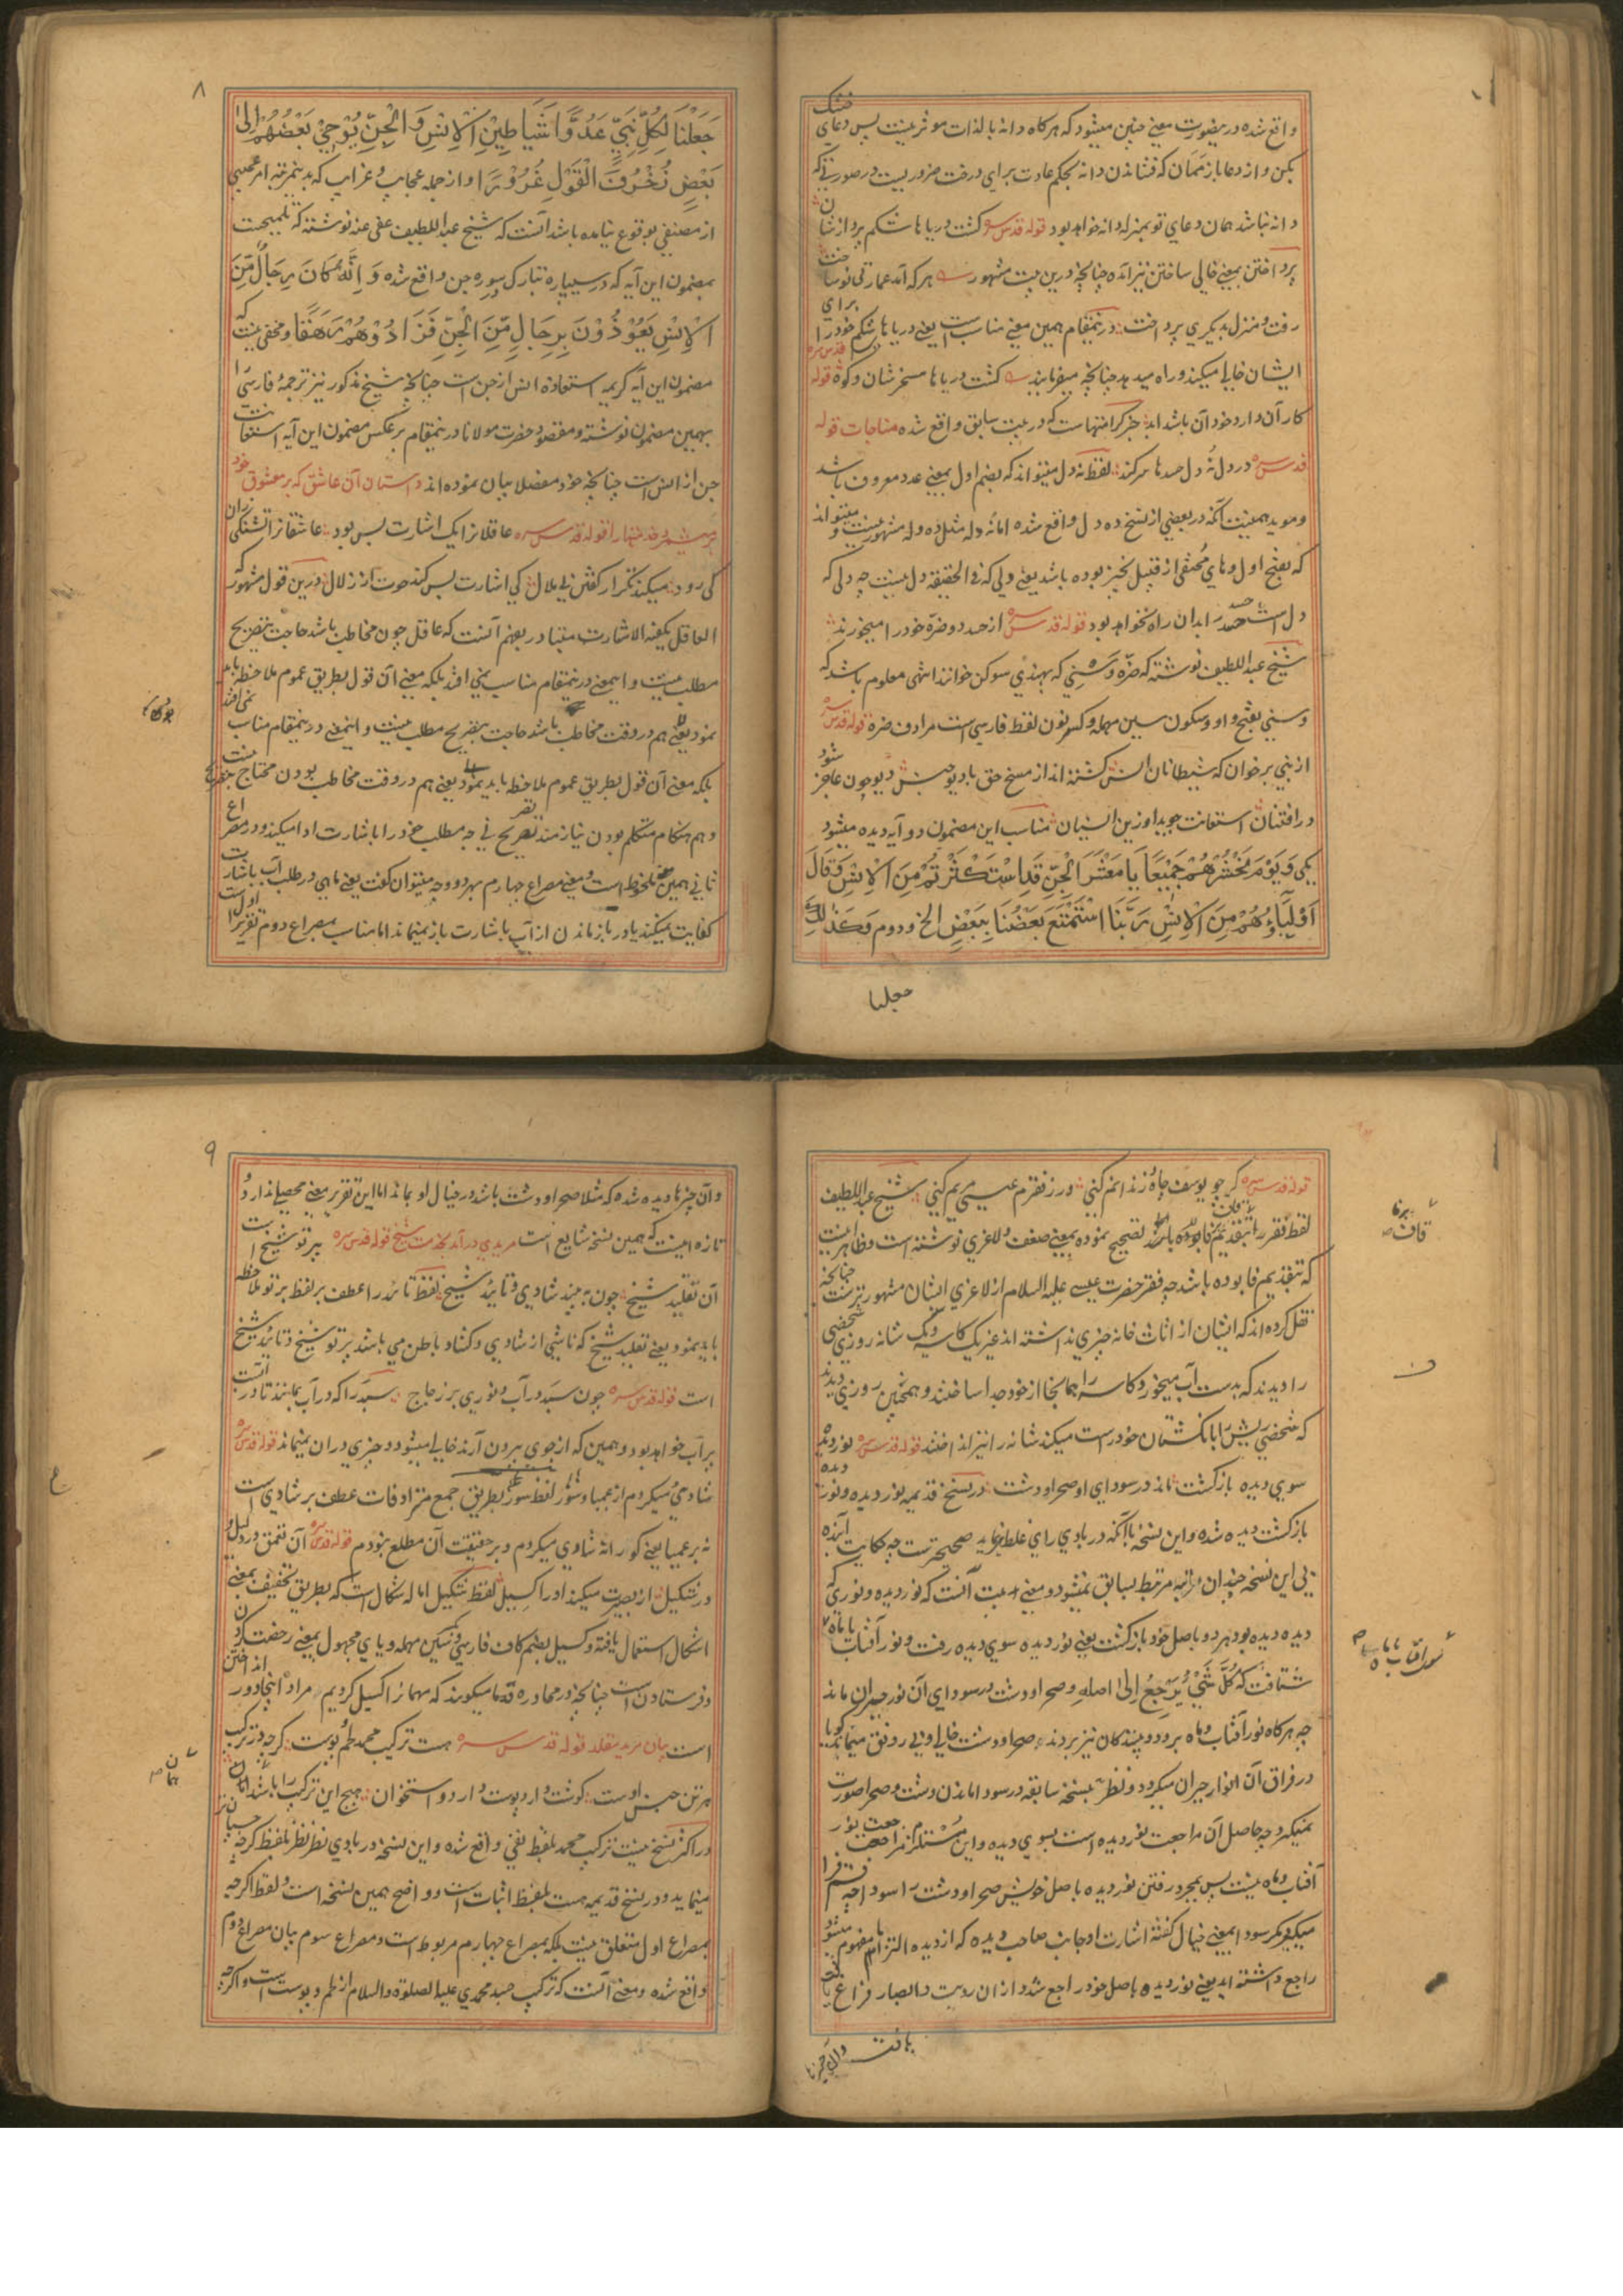 واقع شده درینصورت معنی چنین میشود که هرگاه دانه بالذات موثر نیست پس دعای خشک
بکن و از دعا باز ممان که فشاندن دانه بحکم عادت برای درخت ضرور نیست در صورتیکه
دانه نباشد همان دعای تو بمنزله دانه خواهد بود قوله قدس سره کشت دریاها شکم پردازشان
پرداختن بمعنی خالی ساختن نیز آمده چنانچه درین بیت مشهور هر که آمد عمارتی نو ساخت
رفت و منزل بدیگری پرداخت درینمقام همین معنی مناسب است یعنی دریاها شکم خود را برای
ایشان خالی میکنند و راه میدهد چنانچه میفرمایند کشت دریاها مسخرشان و کوه قوله قدس سره
کار آن دارد خود آن باشد ابد جز که در بیت سابق واقع شده مناجات قوله
قدس سره در دل نه دل حسدها سر کند لفظ نه دل میتواند که بضم اول بمعنی عدد معروف باشد
و موید همینست آنکه در بعضی از نسخ ده دل واقع شده اما نه دله مثل ده دله مشهور نیست و میتواند
که بفتح اول و های مختفی از قبیل نخیز بوده باشد یعنی دلی که فی الحقیقه دل نیست چه دلی که
دل است حسد را بدان راه نخواهد بود قوله قدس سره از حسد دو ضره خود را میخورند
شیخ عبد اللطیف نوشته که ضره وسنی که بهندی سوکن خوانند انتهی معلوم باشد که
وسنی بفتح واو و سکون سین مهمله و کسر نون لفظ فارسی است مرادف ضره قوله قدس سره
از نبی برخوان که شیطانان انس گشته اند از مسخ حق با دیو جنس دیو چون عاجز شود
در افتنان استعانت جوید او زین انسیان مناسب این مضمون دو آیه دیده میشود
یکی وَیَوْمَ یَحْشُرُهُمْ جَمِیْعًا یَا مَعْشَرَ الْجِنِّ قَدِ اسْتَکْثَرْتُمْ مِنَ الْاِنْسِ وَقَالَ
اَوْلِیَاؤُهُمْ مِنَ الْاِنْسِ رَبَّنَا اسْتَمْتَعَ بَعْضُنَا بِبَعْضٍ الخ و دوم وَکَذَلِکَ
جعلنا
۸
جَعَلْنَا لِکُلِّ نَبِیٍّ عَدُوًّا شَیَاطِیْنَ الْاِنْسِ وَ الْجِنِّ یُوْحِیْ بَعْضُهُمْ اِلَی
بَعْضٍ زُخْرُفَ الْقَوْلِ غُرُوْرًا و از جمله عجایب و غرایب که بدینمرتبه امر عجیبی
از مصنفی بوقوع نیامده باشد آنست که شیخ عبد اللطیف عفی عنه نوشته که تلمیحست
بمضمون این آیه که در سیپاره تبارک سوره جن واقع شده وَ اِنَّهُ کَانَ رِجَالٌ مِّنَ
الْاِنْسِ یَعُوْذُوْنَ بِرِجَالٍ مِّنَ الْجِنِّ فَزَادُوْهُمْ رَهَقًا و مخفی نیست که
مضمون این آیه کریمه استعاذه انس از جن است چنانچه شیخ مذکور نیز ترجمه فارسی را
بهمین مضمون نوشته و مقصود حضرت مولانا درینمقام بر عکس مضمون این آیه استعانت
جن از انس است چنانچه خود مفصلا بیان نموده اند داستان آن عاشق که بر معشوق خود
قوله قدس سره عاقلانرا یک اشارت بس بود عاشقانرا تشنگی زان
کی رود میکند تکرار گفتن بی ملال کی اشارت بس کند حوت از زلال درین قول مشهور که
العاقل یکفیه الاشارت متبادر بفهم آنست که عاقل چون مخاطب باشد حاجت بتصریح
مطلب نیست و این معنی درینمقام مناسب نمی افتد بلکه معنی آن قول بطریق عموم ملاحظه باید
نمود یعنی هم در وقت مخاطب باشد حاجت بتصریح مطلب نیست و اینمعنی درینمقام مناسب نمی افتد
بلکه معنی آن قول بطریق عموم ملاحظه باید نمود یعنی هم در وقت مخاطب بودن محتاج بتصریح نیست
و هم هنگام متکلم بودن نیازمند تصریح نی چه مطلب خود را باشارت ادا میکند و در مصراع
ثانی همین معنی ملحوظ است و معنی مصراع چهارم بهر دو وجه میتوان گفت یعنی ماهی در طلب آب باشارت
کفایت نمیکند یا در باز ماندن از آب باشارت باز نمیماند اما مناسب بمصراع دوم تقریر اول است
قوله قدس سره گر چو یوسف چاه و زندانم کنی ور ز فقرم عیسی مریم کنی شیخ عبد اللطیف
لفظ فقر را بتقدیم قاف بر فا تصحیح نموده بمعنی ضعف و لاغری نوشته است و ظاهر اینست
که بتقدیم فا بوده باشد چه فقر حضرت عیسی علیه السلام از لاغری ایشان مشهورترست چنانچه
نقل کرده اند که ایشان از اثاث خانه چیزی نداشته اند غیر یک کاسه و یک شانه روزی شخصی
را دیدند که بدست آب میخورد کاسه را همانجا از خود جدا ساختند و همچنین روزی دیدند
که شخصی ریش را بانگشتان خود درست میکند شانه را نیز انداختند قوله قدس سره نور دیده
سوی دیده بازگشت ماند در سودای او صحرا و دشت در نسخ قدیمه نور دیده و نور دیده
بازگشت دیده شده و این نسخه با آنکه در بادی رای غلط نماید صحیحترست چه حکایت آینده
بی این نسخه چندان مرتبط بسابق نمیشود و معنی بیت آنست که نور دیده و نوری که
دیده دیده بود هر دو باصل خود بازگشت یعنی نور دیده سوی دیده رفت و نور آفتاب یا ماه
شتافت که کُلُّ شَیْءٍ یَرْجِعُ اِلَی اصله و صحرا و دشت در سودای آن نور حیران ماند
چه هرگاه نور آفتاب و ماه برود و بینندگان نیز بروند صحرا و دشت خالی و بی رونق میماند گویا
در فراق آن انوار حیران میگردد و نظر به نسخه سابقه در سودا ماندن دشت و صحرا صورت
نمیگیرد چه حاصل آن مراجعت نور دیده است بسوی دیده و این مستلزم مراجعت نور
آفتاب و ماه نیست پس بمجرد رفتن نور دیده باصل خویش صحرا و دشت را سودا چه قسم فرا
میگیرد مگر سودا بمعنی خیال گفته اشارت او جانب صاحب دیده که از دیده التزاما مفهوم میشود
راجع داشته اید یعنی نور دیده باصل خود راجع شد و از ان رویت و ابصار فراغ یافت
یافت
وان چیزها
۹
و آن چیزها دیده شده که مثلا صحرا و دشت باشد در خیال او بماند اما این تقریر معنی محصلی ندارد و
تازه اینست که همین نسخه شایع است مریدی در آمد بخدمت شیخ قوله قدس سره پرتو شیخ است
آن تقلید شیخ چون بیند شادی و تائید شیخ لفظ تائید را عطف بر لفظ پرتو ملاحظه
باید نمود یعنی تقلید شیخ که ناشی از شادی و گشاد باطن می باشد پرتو شیخ و تائید شیخ
است قوله قدس سره چون سبد در آب و نوری بر زجاج سبد را که در آب بمانند تا در آبست
پر آب خواهد بود و همین که از جوی بیرون آرند خالی میشود و چیزی دران نمیماند قوله قدس سره
شادیی میکردم از عمیا و شور لفظ سور بطریق جمع مترادفات عطف بر شادی است
نه بر عمیا یعنی کورانه شادی میکردم و بر حقیقت آن مطلع نبودم قوله قدس سره آن تعمق در دلیل و
در شکیل از بصیرت میکند او را گسیل لفظ شکیل اماله شکال است که بطریق تخفیف بمعنی
اشکال استعمال یافته و گسیل بضم کاف فارسی و سین مهمله و یای مجهول بمعنی رخصت کردن
و فرستادن است چنانچه در محاوره قدما میگویند که مهمانرا گسیل کردیم مراد اینجا دور انداختن
است بیان مرید مقلد قوله قدس سره هست ترکیب محمد لحم و پوست گرچه در ترکیب
هر تن جنس اوست گوشت دارد پوست دارد استخوان هیچ این ترکیب را باشد همان
در اکثر نسخ نیست ترکیب محمد بلفظ نفی واقع شده و این نسخه در بادی نظر نظر بلفظ گرچه چسپان تر
مینماید و در نسخ قدیمه هست بلفظ اثبات است و واضح همین نسخه است و لفظ اگرچه
بمصراع اول متعلق نیست بلکه بمصراع چهارم مربوط است و مصراع سوم بیان مصراع دوم
واقع شده و معنی آنست که ترکیب جسد محمدی علیه الصلوة والسلام از لحم و پوست است و اگرچه